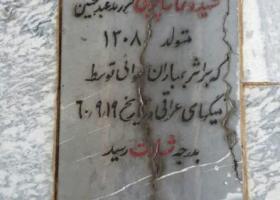 شهید رضا فرزند عبدحسین
متولد ۱۳۰۸
که بر اثر بمباران هوائی توسط
میگهای عراقی در تاریخ ۶۰٫۹٫۱۹
بدرجه شهادت رسید